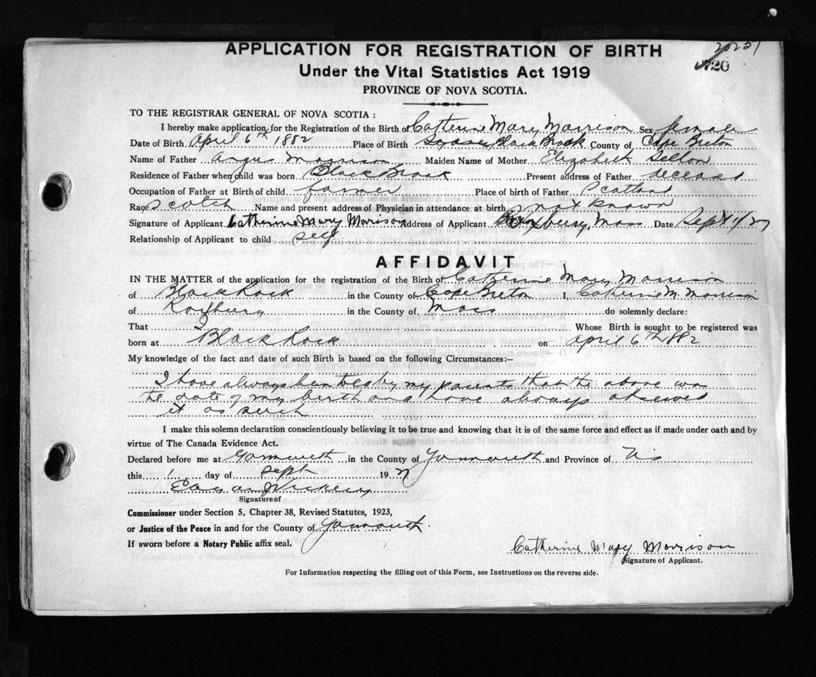 APPLICATION FOR REGISTRATION OF BIRTH
Under the Vital Statistics Act 1919
PROVINCE OF NOVA SCOTIA.
TO THE REGISTRAR GENERAL OF NOVA SCOTIA :
I hereby make application for the Registration of the Birth of Catherine Mary Morrison Sex female
Date of Birth April 6th 1882 Place of Birth Black Rock County of Cape Breton
Name of Father Angus Morrison Maiden Name of Mother Elizabeth
Residence of Father when child was born Black Rock Present address of Father deceased
Occupation of Father at Birth of child farmer Place of birth of Father Scotland
Race Scotch Name and present address of Physician in attendance at birth not known
Signature of Applicant Catherine Mary Morison Address of Applicant Roxbury, Mass Date Sept 1/27
Relationship of Applicant to child self
AFFIDAVIT
IN THE MATTER of the application for the registration of the Birth of Catherine Mary Morrison
of Black Rock in the County of Cape Breton I, Catherine M. Morrison
of Roxbury in the County of Mass do solemnly declare:
That I Whose Birth is sought to be registered was
born at Black Rock on April 6th 1882
My knowledge of the fact and date of such Birth is based on the following Circumstances:—
I have always been told by my parents that the above was
the date of my birth and have always observed
it as such
I make this solemn declaration conscientiously believing it to be true and knowing that it is of the same force and effect as if made under oath and by
virtue of The Canada Evidence Act.
Declared before me at Yarmouth in the County of Yarmouth and Province of NS
this 1 day of Sept 1927
Signature of
Commissioner under Section 5, Chapter 38, Revised Statutes, 1923,
or Justice of the Peace in and for the County of Yarmouth.
If sworn before a Notary Public affix seal.
Catherine Mary Morrison
Signature of Applicant.
For Information respecting the filling out of this Form, see Instructions on the reverse side.